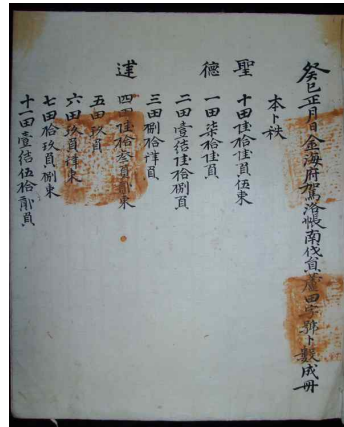 癸巳正月日金海府駕洛帳南伐員蘆田字號卜數成冊
本卜秩
聖 十田陸拾陸負伍束
德 一田柒拾陸負
二田壹結陸拾捌負
三田捌拾肆負
建 四田陸拾叁負貳束
五田玖負
六田玖負肆束
七田拾玖負捌束
十一田壹結伍拾貳負